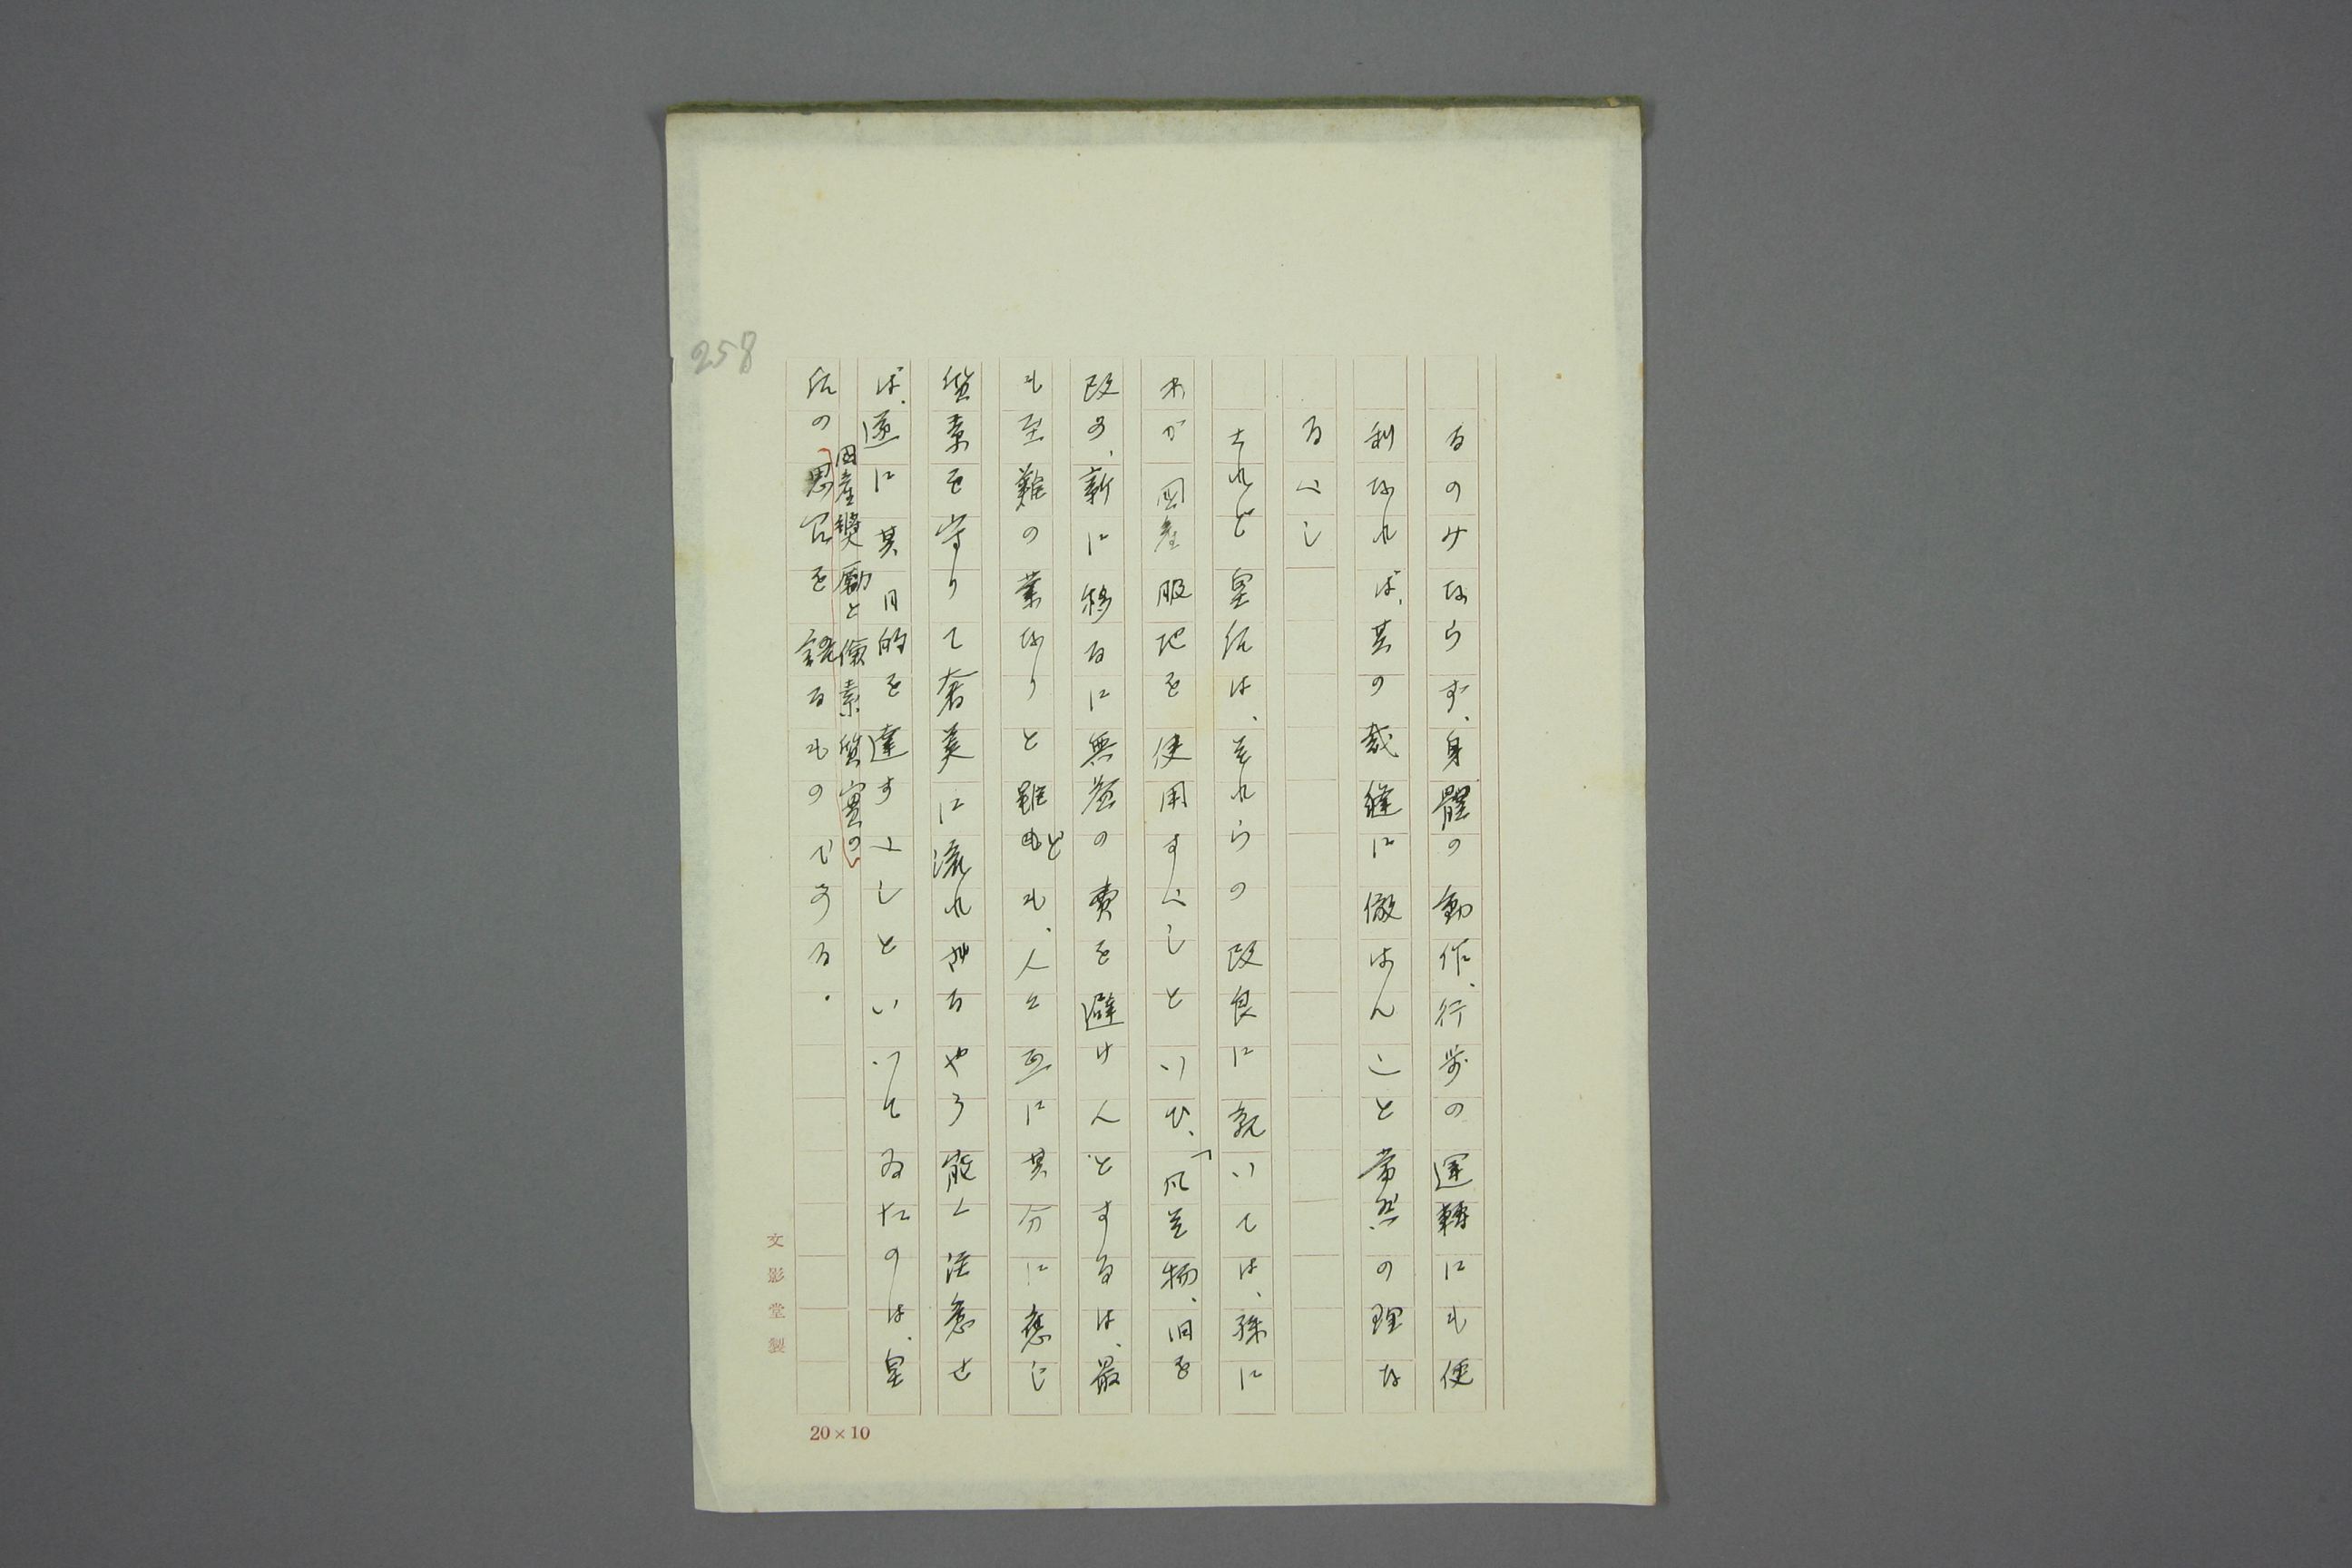 258
るのみならず、身體の動作、行歩の運轉にも便
利なれば、其の裁縫に倣はんこと當然の理な
るべし
されど皇后は、それらの改良に就いては、殊に
わが國産服地を使用すべしといひ、「凡そ物、旧を
改め、新に移るに無益の費を避けんとするは、最
も至難の業なりと雖ども、人々互に其分に應じ
質素を守りて奢美に流れざるやう能く注意せ
ば、遂に其目的を達すべしといつてゐたのは、皇
后の國産奬勵と儉素質實の思召を語るものである。
文影堂製
20×10